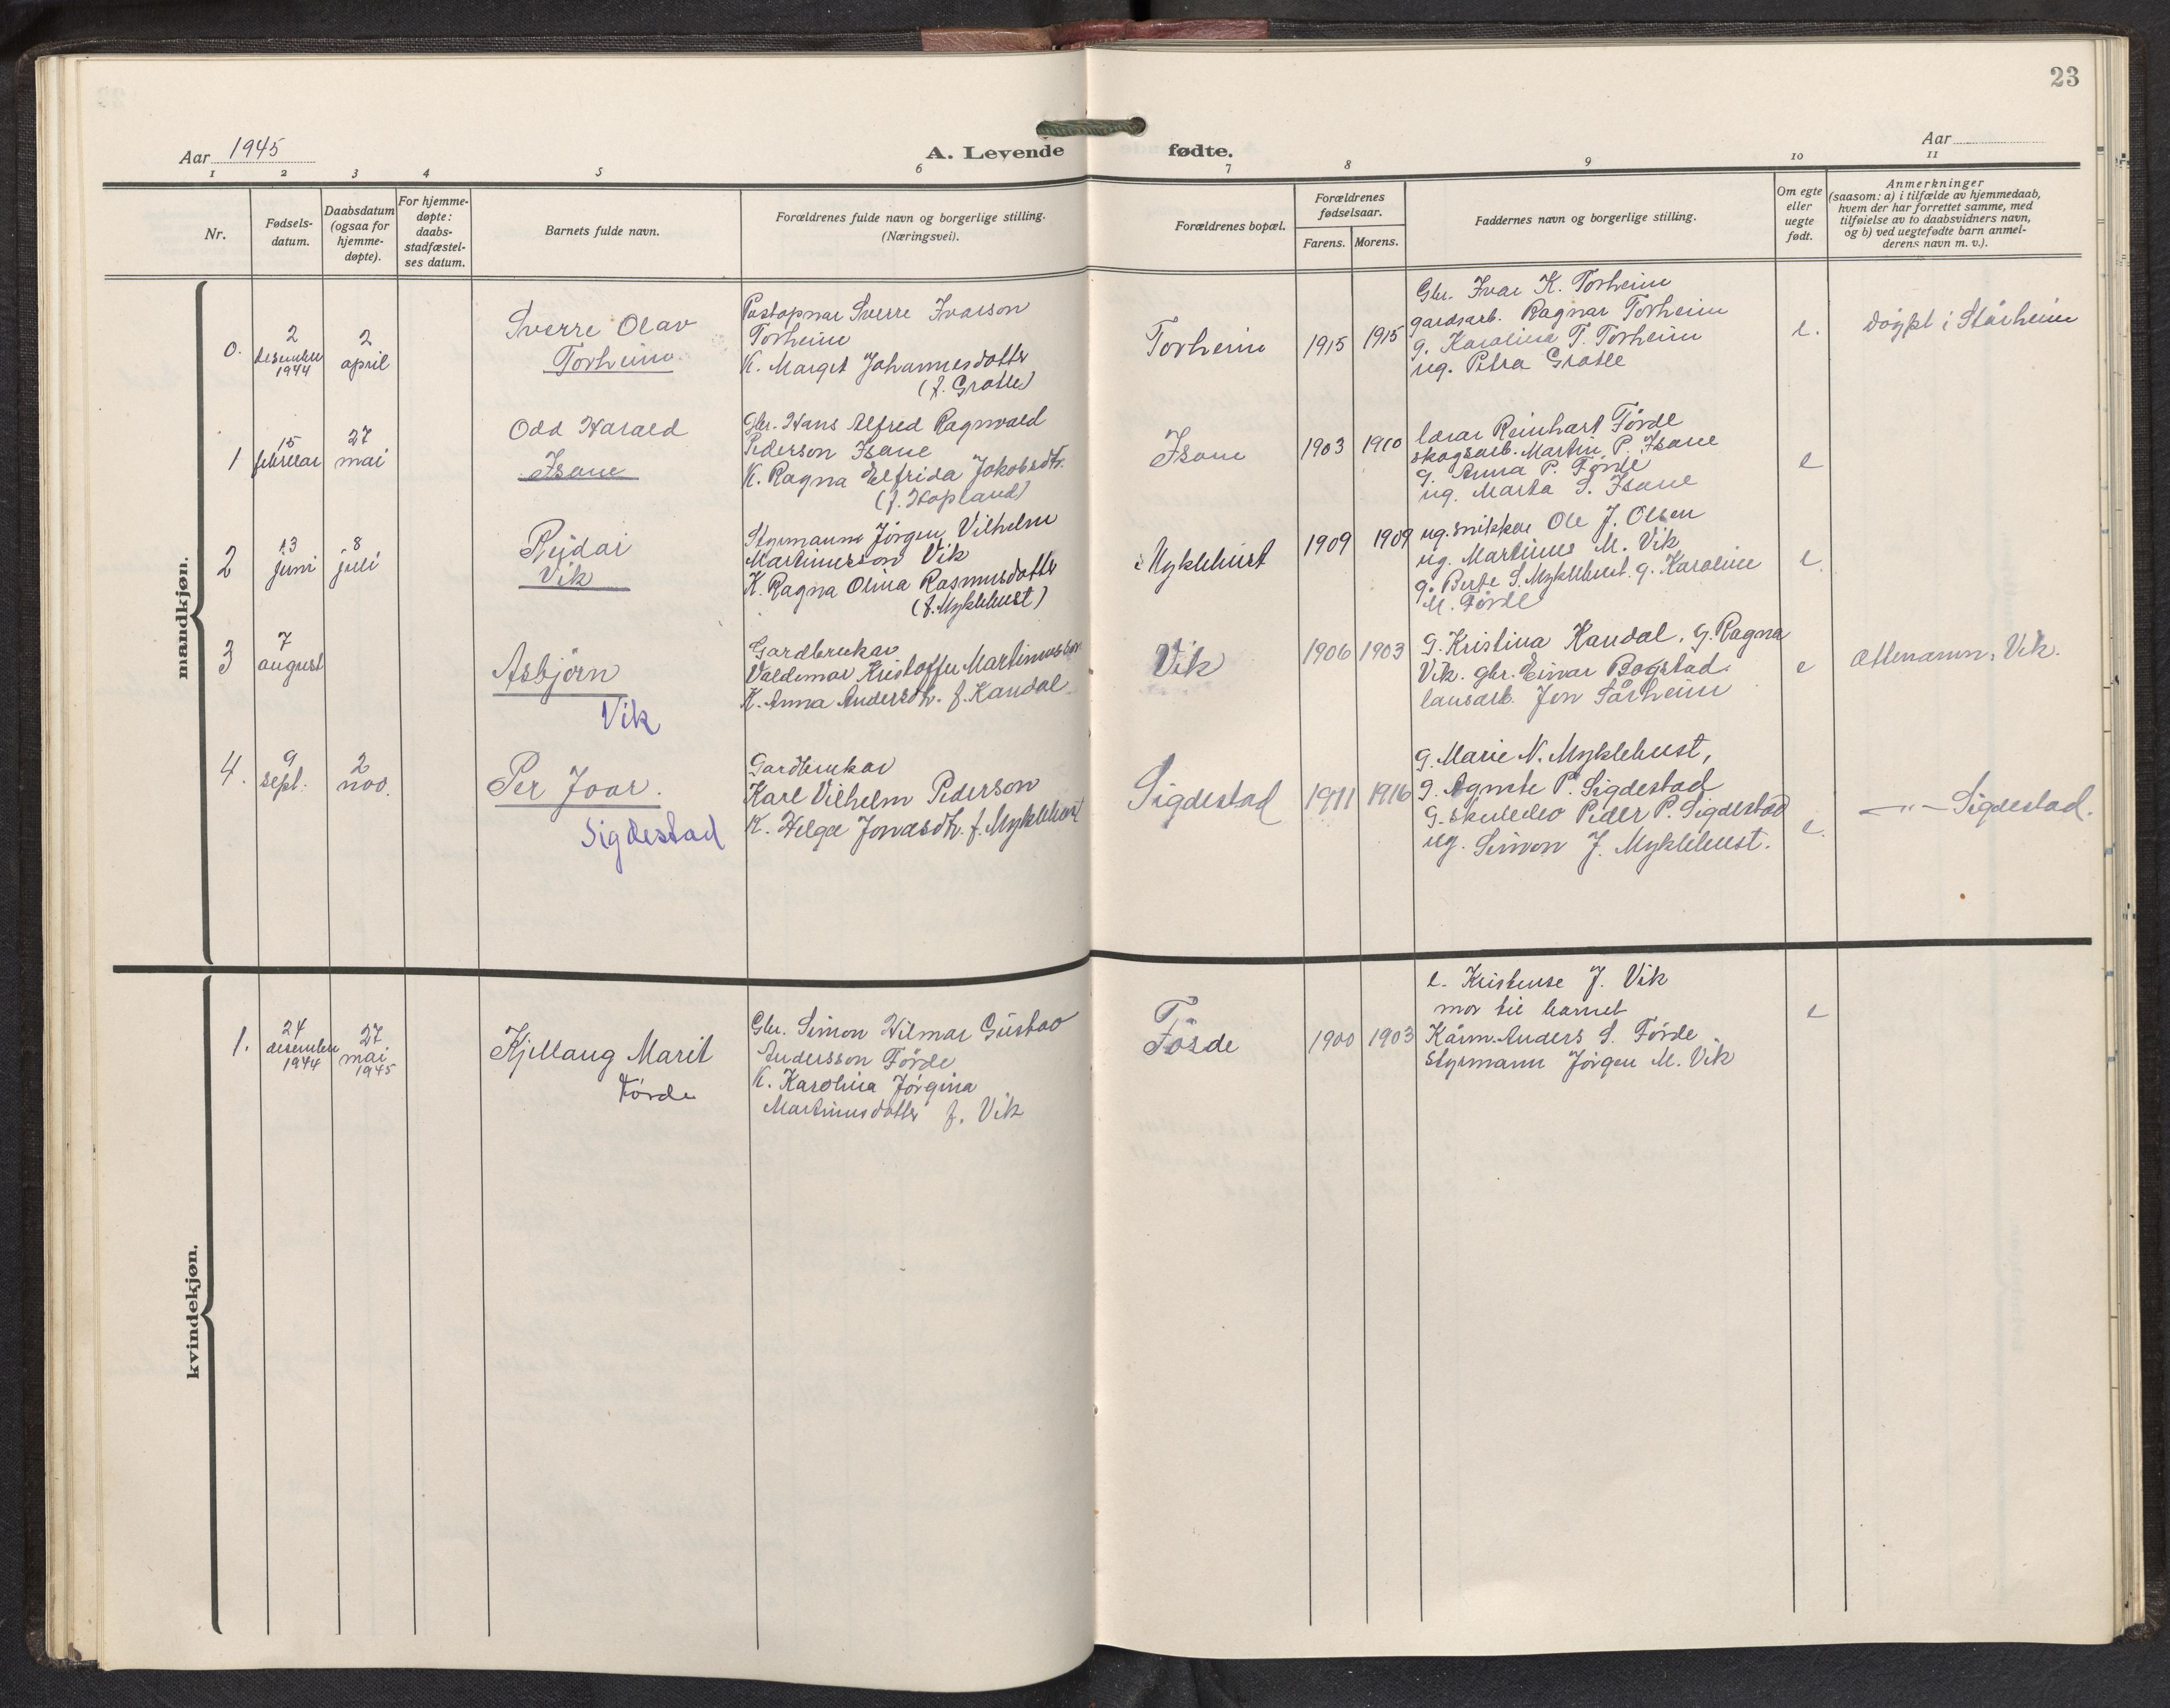 23
Aar 1945
A. Levende fødte.
Aar
1 2 3 4 5 6 7 8 9 10 11
Nr.
Fødsels-
datum.
Daabsdatum
(ogsaa for
hjemme-
døpte).
For hjemme-
døpte:
daabs-
stadfæstel-
ses datum.
Barnets fulde navn.
Forældrenes fulde navn og borgerlige stilling.
(Næringsvei).
Forældrenes bopæl.
Forældrenes
fødselsaar.
Farens. Morens.
Faddernes navn og borgerlige stilling.
Om egte
eller
uegte
født.
Anmerkninger
(saasom: a) i tilfælde av hjemmedaab,
hvem der har forrettet samme, med
tilføielse av to daabsvidners navn,
og b) ved uegtefødte barn anmel-
derens navn m. v.).
mandkjøn.
0.
2
desember
1944
2
april
Sverre Olav
Torheim
Postopnar Sverre Ivarson
Torheim
K. Marget Johannesdotter
(f. Grotle)
Torheim
1915
1915
Gbr. Ivar K. Torheim
gardsarb. Ragnar Torheim
g. Karolina T. Torheim
ug. Petra Grotle
e.
døypt i Stårheim
1
15
februar
27
mai
Odd Harald
Isane
Gbr. Hans Alfred Ragnvald
Pederson Isane
K. Ragna Elfrida Jakobsdtr.
(f. Hopland)
Isane
1903
1910
lærar Reinhart Førde
skogsarb. Martin P. Isane
g. Anna P. Førde
ug. Marta S. Isane
e
2
13
juni
8
juli
Reidar
Vik
Styrmann Jörgen Vilhelm
Martinusson Vik
K. Ragna Olina Rasmusdotter
(f. Myklebust)
Myklebust
1909
1909
ug. snikkar Ole J. Olsen
ug. Martinus M. Vik
g. Berte S. Myklebust. g. Karoline
M. Förde
e.
3
7
august
Asbjörn
Vik
Gardbrukar
Valdemar Kristoffer Martinusson
K. Anna Andersdtr. f. Kandal
Vik
1906
1903
G. Kristina Kandal, G. Ragna
Vik. gbr. Einar Bogstad.
lausarb. Jon Sårheim
e
Attenamn: Vik.
4.
9
sept.
2
nov.
Per Joar.
Sigdestad
Gardbrukar
Karl Vilhelm Pederson
K. Helga Jonasdtr. f. Myklebust
Sigdestad
1911
1916
G. Marie N. Myklebust,
G. Agnete P. Sigdestad
G. skuleelev Peder P. Sigdestad
ug. Simon J. Myklebust.
e.
—"— Sigdestad.
kvindekjøn.
1.
24
desember
1944
27
mai
1945
Kjellaug Marit
Förde
Gbr. Simon Hilmar Gustav
Andersson Förde
K. Karolina Jørgina
Martinusdotter f. Vik
Förde
1900
1903
e. Kristense J. Vik
mor til barnet
Kårm. Anders S. Førde
Styrmann Jörgen M. Vik
e